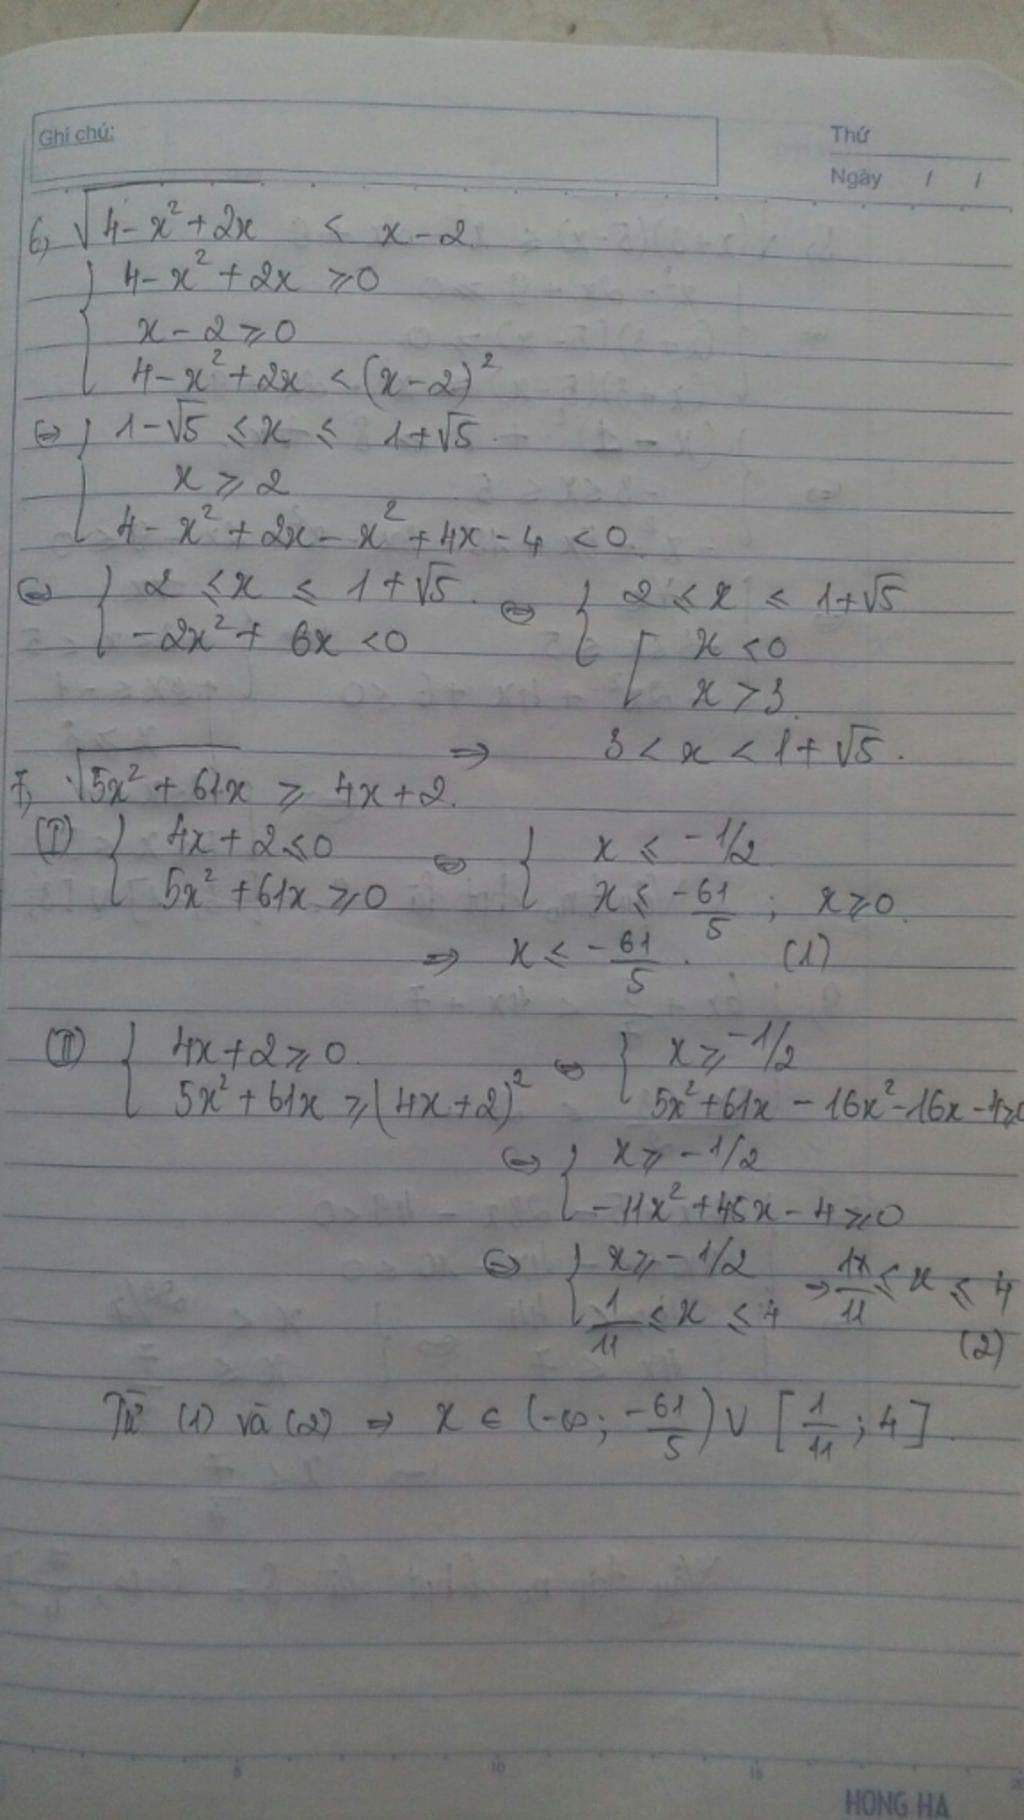 Ghi chú:
Thứ
Ngày / /
6, √(4-x²+2x) < x-2
{ 4-x²+2x ⩾0
x-2⩾0
4-x²+2x <(x-2)²
⇔ { 1-√5 ⩽x ⩽ 1+√5
x ⩾ 2
4-x²+2x-x²+4x-4 <0
⇔ { 2 ⩽x ⩽ 1+√5 ⇔ { 2 ⩽ x ⩽ 1+√5
-2x²+ 6x <0 [ x <0
x >3
⇒ 3 < x < 1+√5.
7, √(5x²+61x) ⩾ 4x+2.
(I) { 4x+2⩽0 ⇔ { x ⩽ -1/2
5x²+61x ⩾0 x ⩽ -61/5 ; x⩾0
⇒ x ⩽ -61/5. (1)
(II) { 4x+2⩾0 ⇔ { x ⩾ -1/2
5x²+61x ⩾(4x+2)² 5x²+61x-16x²-16x-4⩾0
⇔ { x⩾-1/2
-11x²+45x-4⩾0
⇔ { x⩾-1/2 ⇒ 1/11 ⩽ x ⩽ 4
1/11 ⩽ x ⩽ 4 (2)
Từ (1) và (2) ⇒ x ∈ (-∞; -61/5) ∪ [1/11; 4]
5 10 15
HONG HA